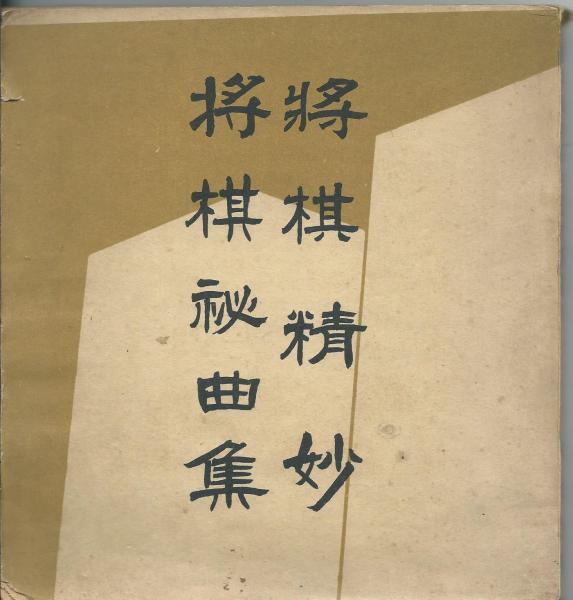 將棋精妙
将棋秘曲集